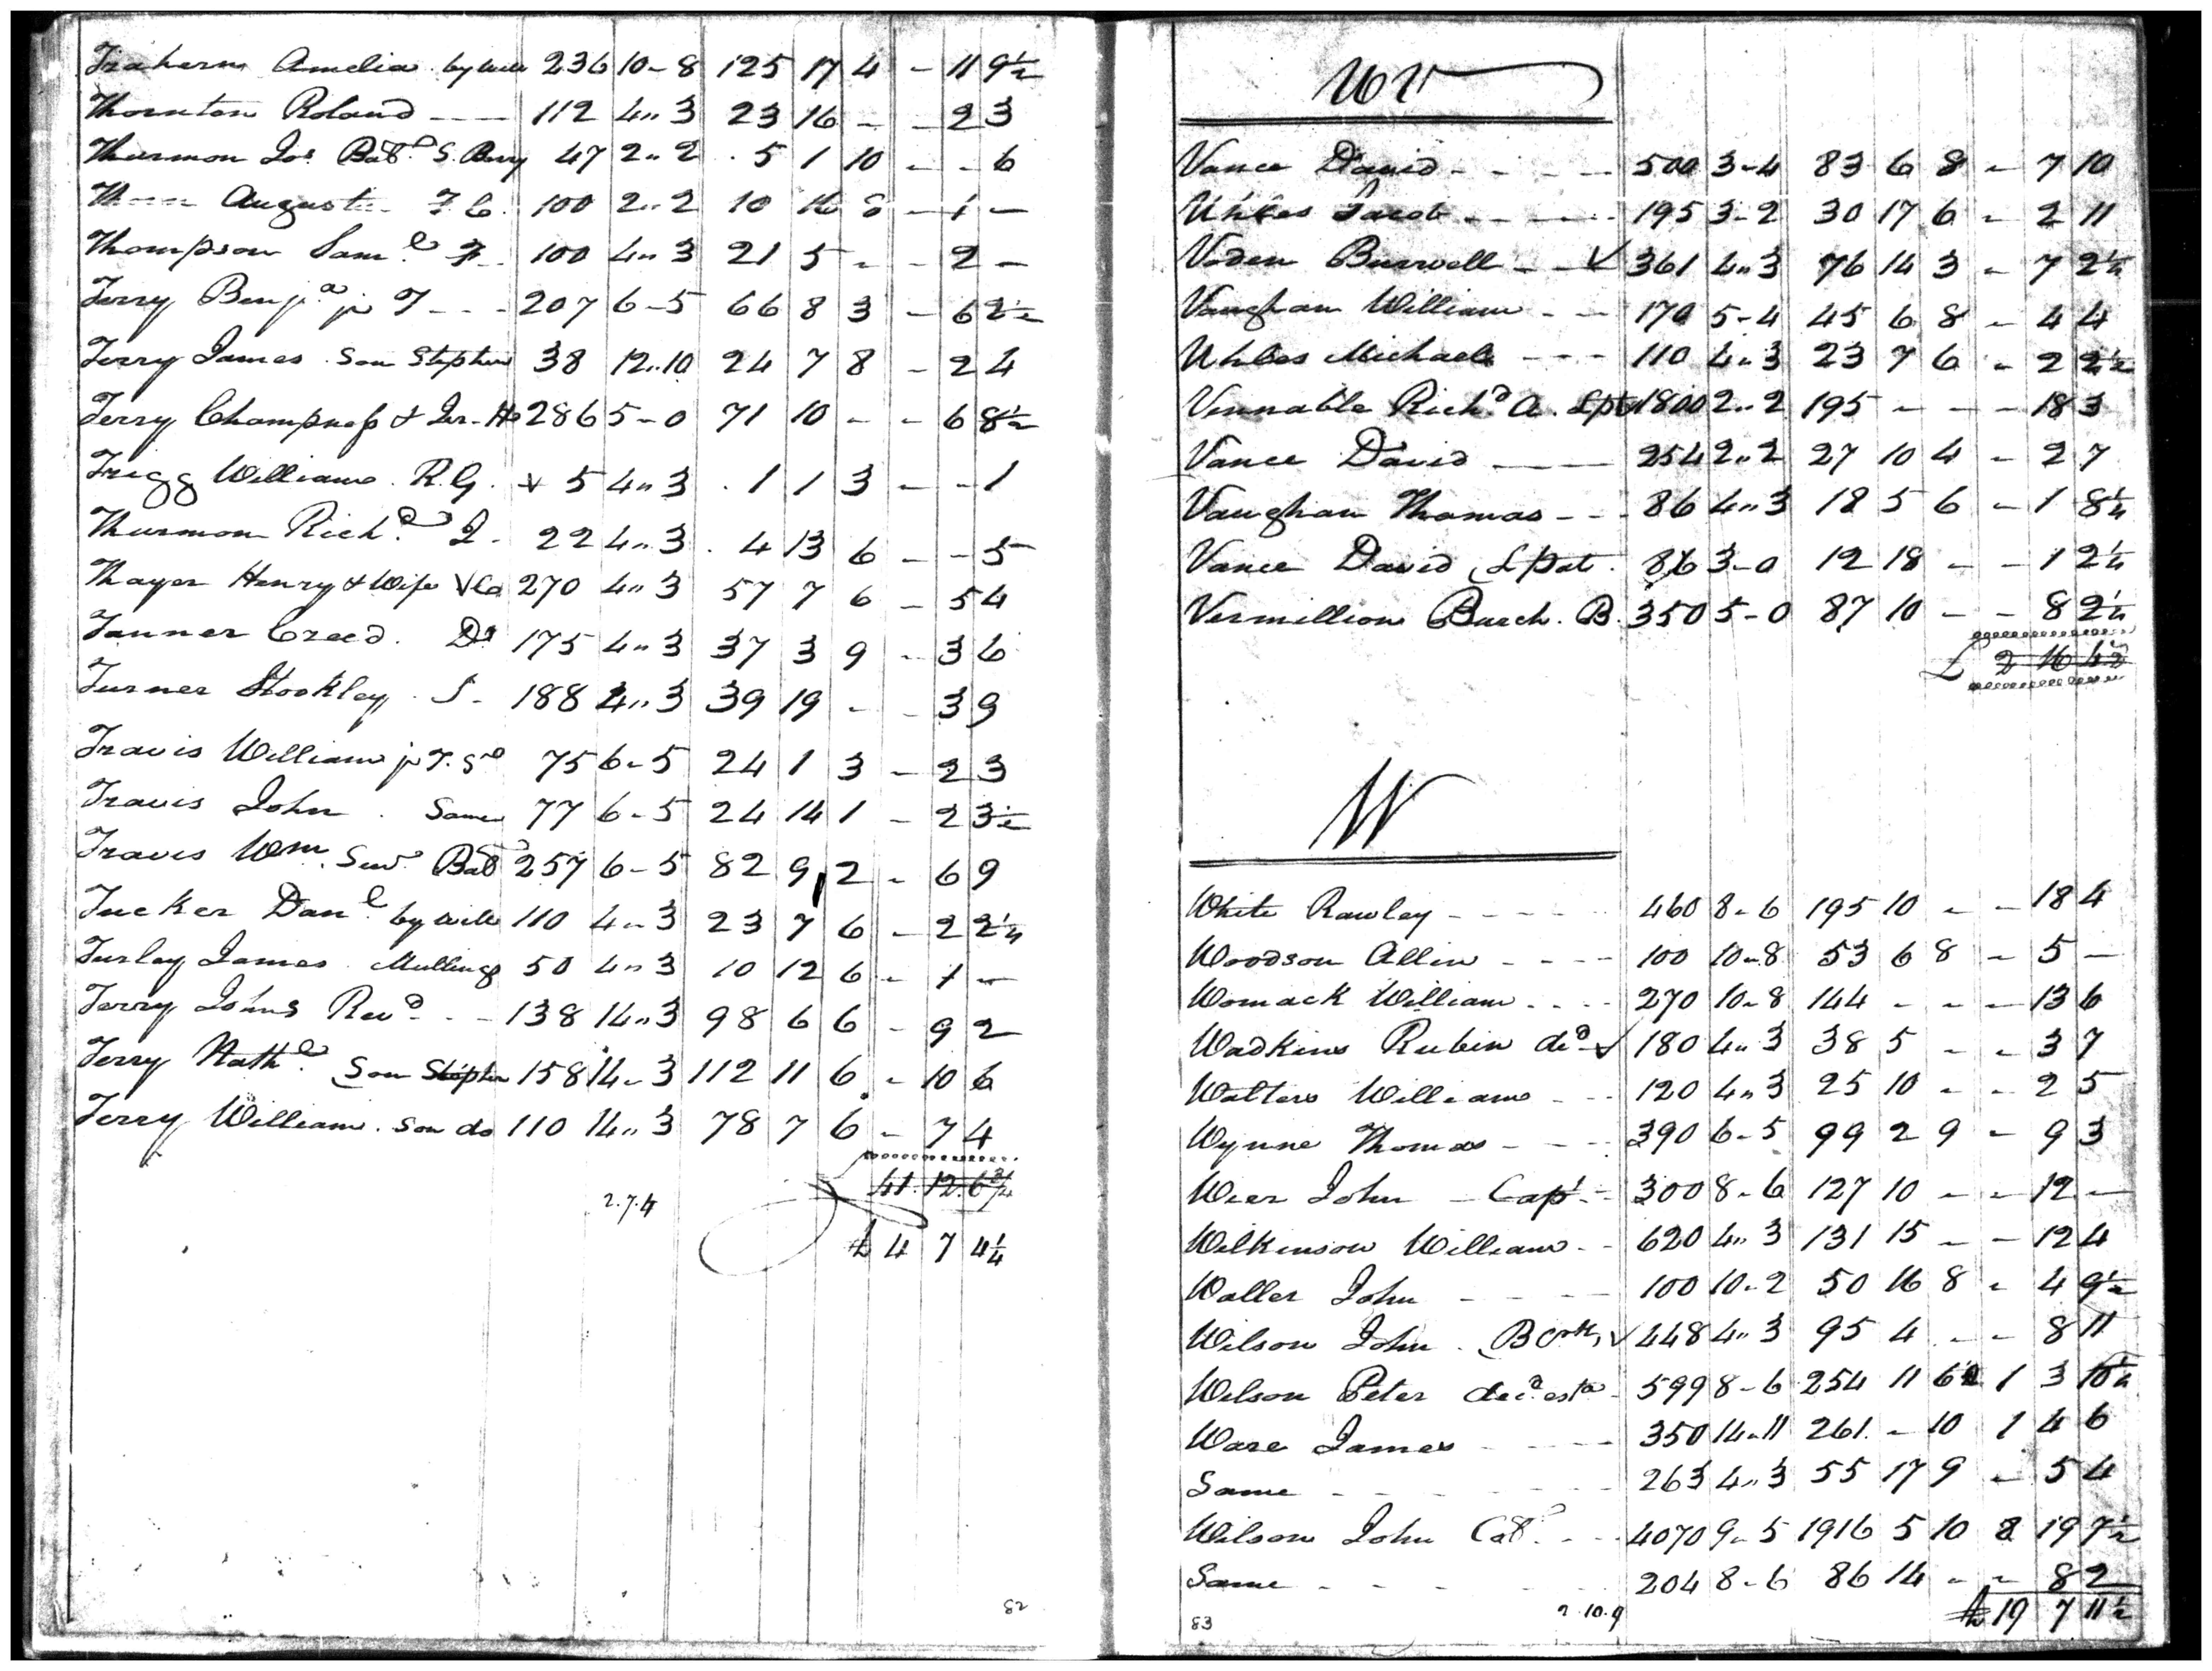 Traherne Amelia by Will 236 10-8 125 17 4 - 11 9½
Thornton Roland ---- 112 4"3 23 16 - - 2 3
Thurmon Jos. Batt S. Berry 47 2"2 5 1 10 - - 6
August 100 2"2 10 16 8 - 1 -
Thompson Saml 100 4"3 21 5 - - 2 -
Terry Benja jr T - - - 207 6-5 66 8 3 - 6 2½
Terry James Son Stephen 38 12"10 24 7 8 - 2 4
Terry Champness & Jr - 286 5-0 71 10 - - 6 8½
Trigg William R.G. 5 4"3 1 1 3 - - 1
Thurmon Richd 22 4"3 4 13 6 - - 5
Thayer Henry & Wife 270 4"3 57 7 6 - 5 4
Tanner Creed Do 175 4"3 37 3 9 - 3 6
Turner Stookley S - 188 4"3 39 19 - - 3 9
Travis William jr T. 75 6-5 24 1 3 - 2 3
Travis John Same 77 6-5 24 14 1 - 2 3½
Travis Wm Senr 257 6-5 82 9 2 - 6 9
Tucker Danl by Will 110 4"3 23 7 6 - 2 2¼
Turley James Mullings 50 4"3 10 12 6 - 1 -
Terry Johns Revd - - 138 14"3 98 6 6 - 9 2
Terry Nathl Son Stephen 158 14"3 112 11 6 - 10 6
Terry William Son do 110 14"3 78 7 6 - 7 4
41.12.6¾
2.7.4
£ 4 7 4¼
82
UV
Vance David - - - - 500 3-4 83 6 8 - 7 10
Uhles Jacob - - - - 195 3-2 30 17 6 - 2 11
Voden Burwell - - √ 361 4"3 76 14 3 - 7 2¼
Vaughan William - - 170 5-4 45 6 8 - 4 4
Uhles Michael - - - 110 4"3 23 7 6 - 2 2½
Vennable Richd A. 1800 2"2 195 - - - 18 3
Vance David ---- 254 2"2 27 10 4 - 2 7
Vaughan Thomas - - - 86 4"3 18 5 6 - 1 8¼
Vance David 86 3-0 12 18 - - 1 2¼
Vermillion Burch. B. 350 5-0 87 10 - - 8 2¼
£ 2 16
W
White Rawley - - - - 460 8-6 195 10 - - 18 4
Woodson Allin - - - - 100 10-8 53 6 8 - 5 -
Womack William - - - - 270 10-8 144 - - - 13 6
Wadkins Rubin decd √ 180 4"3 38 5 - - 3 7
Walters William - - - 120 4"3 25 10 - - 2 5
Wynne Thomas - - - 390 6-5 99 2 9 - 9 3
Wier John - Capt - - 300 8-6 127 10 - - 12 -
Wilkinson William - - 620 4"3 131 15 - - 12 4
Waller John - - - - 100 10-2 50 16 8 - 4 9½
Wilson John √ 448 4"3 95 4 - - 8 11
Wilson Peter decd esta 599 8-6 254 11 6 1 3 10½
Ware James - - - - 350 14-11 261 - 10 1 4 6
Same - - - - - 263 4"3 55 17 9 - 5 4
Wilson John - - - 4070 9-5 1916 5 10 8 19 7½
Same - - - - - 204 8-6 86 14 - - 8 2
83
2.10.9
£ 19 7 11½